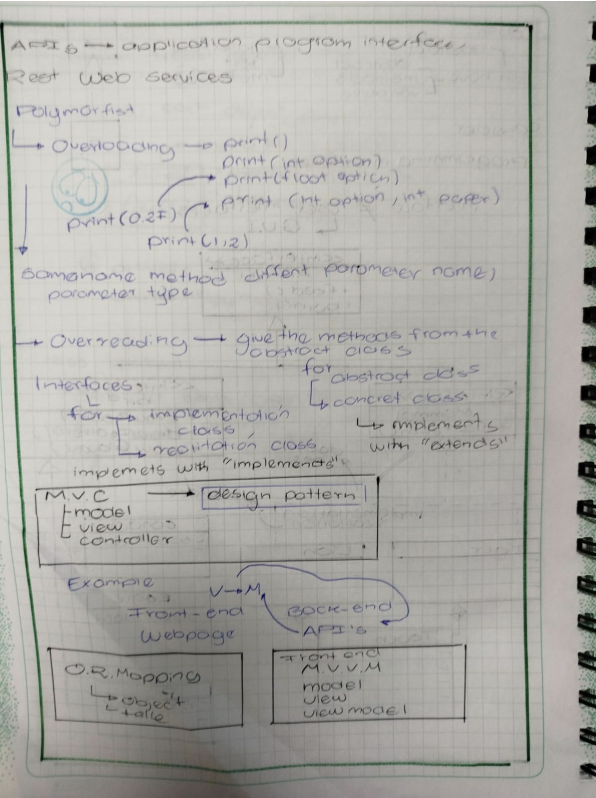 API's → application program interface
Rest Web services
Polymorfist
→ Overloading → print()
print(int option)
print(float option)
print (int option, int paper)
print(0.2F)
print(1,2)
Samename method diffent parameter name,
parameter type
→ Overreading → give the methods from the
abstract class
for
abstract class
→ concret class
→ implements
with "extends"
Interfaces
for → implementation
class
→ realitation class
implemets with "implements"
M.V.C → design pattern
model
view
controller
Example
V → M
Front-end
Webpage
Back-end
API's
O.R.Mapping
→ object
Front end
M.V.V.M
model
view
viewmodel